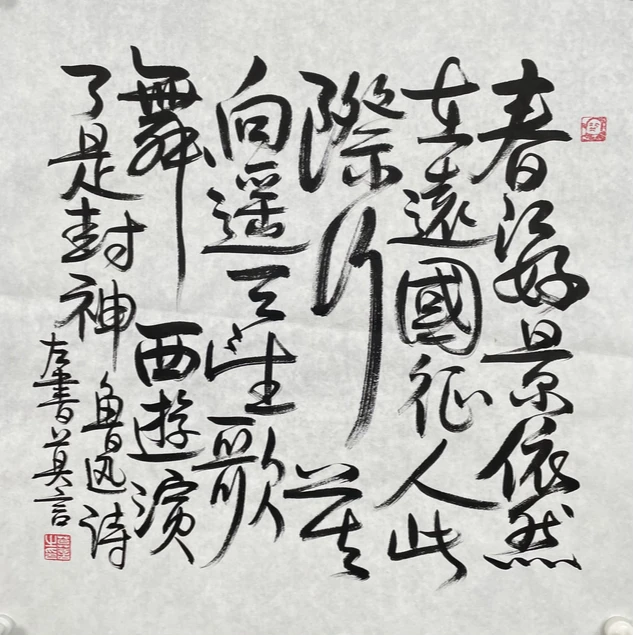 春江好景依然
在遠國征人此
際行莫
向遥天望歌
舞西遊演
了是封神
魯迅詩
左書莫言